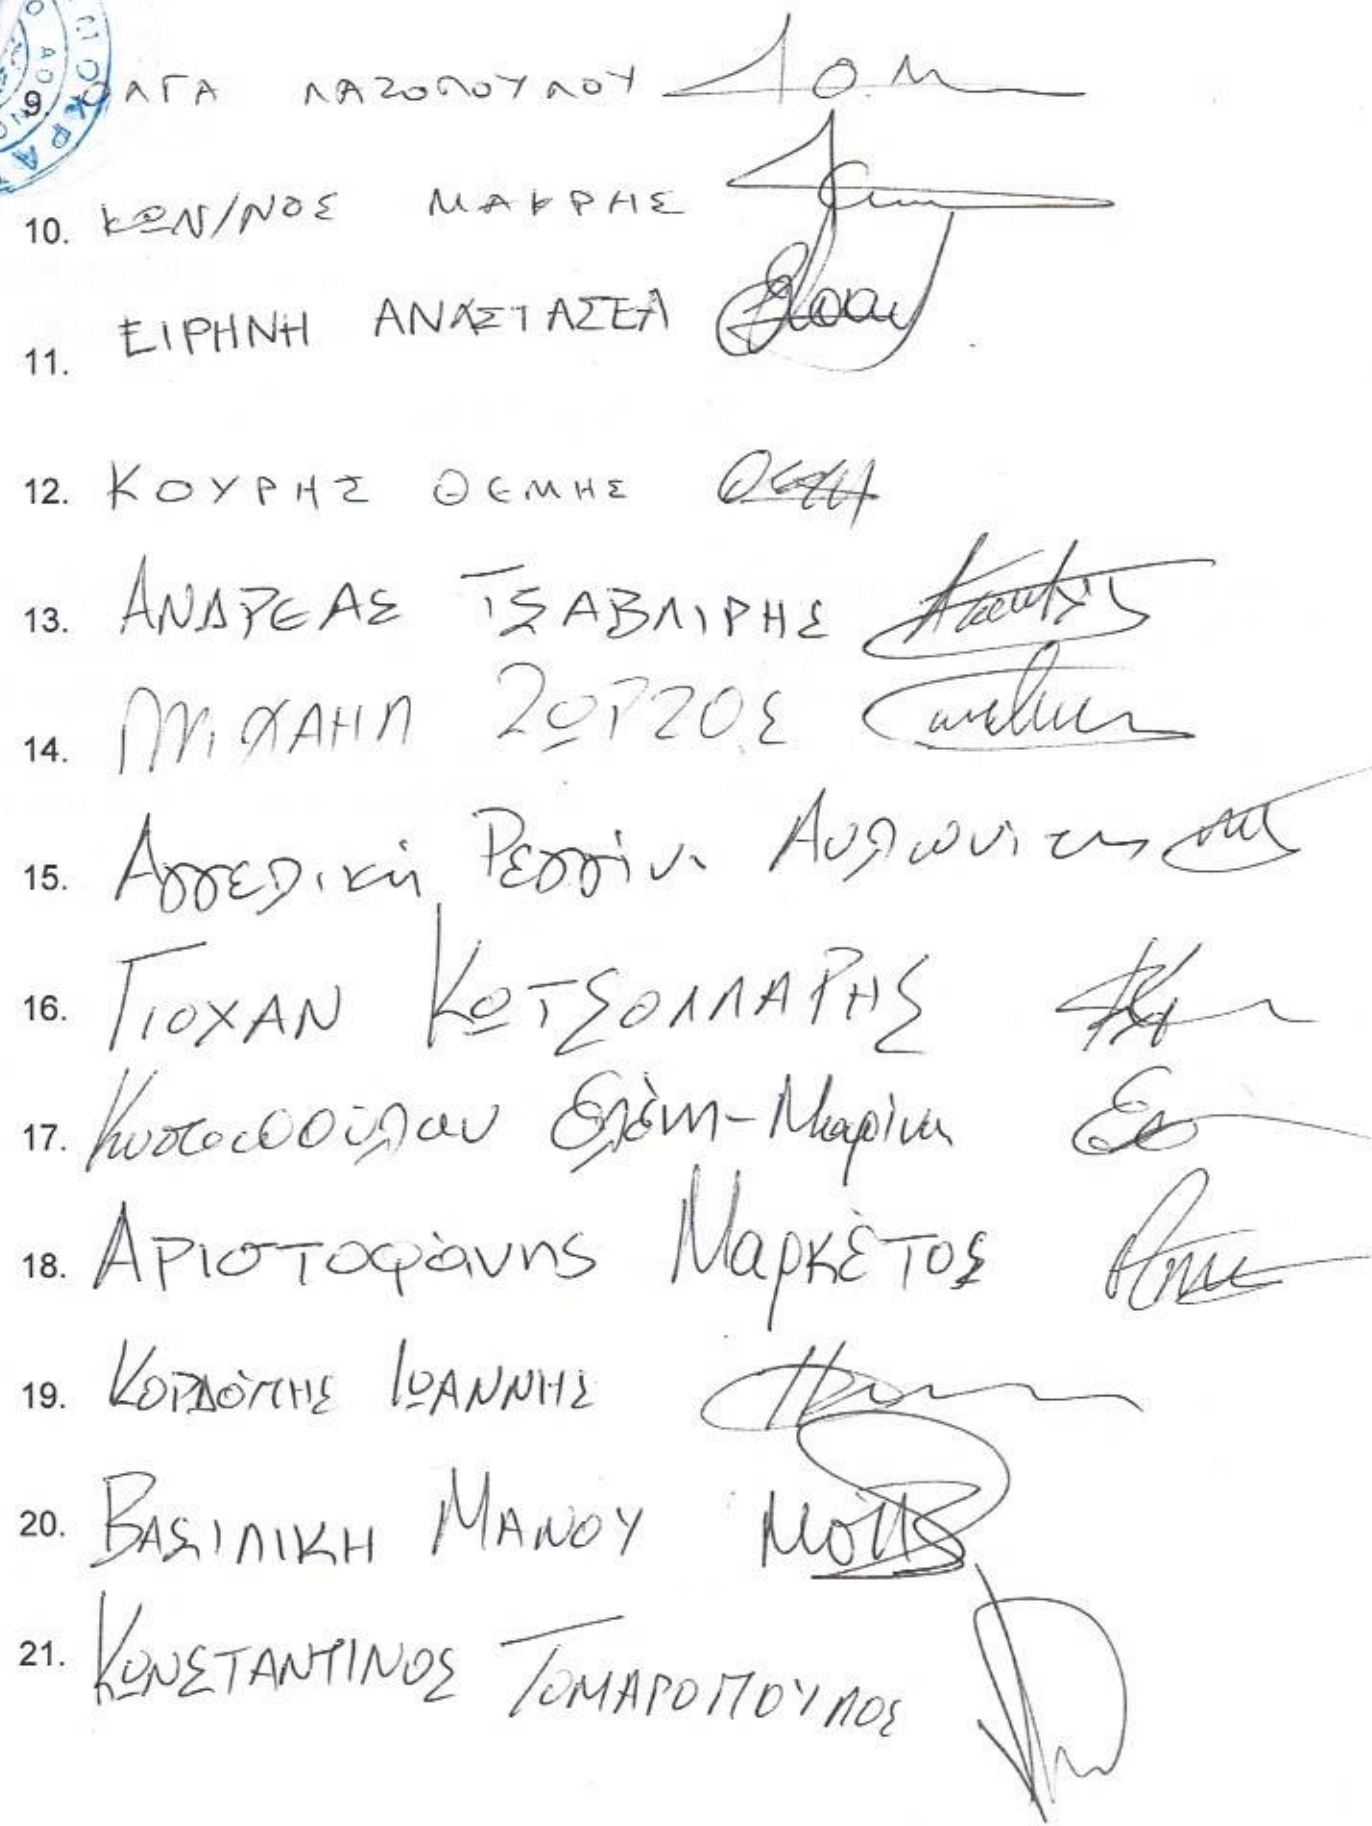 9. ΟΛΓΑ ΛΑΖΟΠΟΥΛΟΥ
10. ΚΩΝ/ΝΟΣ ΜΑΚΡΗΣ
11. ΕΙΡΗΝΗ ΑΝΑΣΤΑΣΕΑ
12. ΚΟΥΡΗΣ ΘΕΜΗΣ
13. ΑΝΔΡΕΑΣ ΤΣΑΒΛΙΡΗΣ
14. ΜΙΧΑΗΛ ΖΩΡΖΟΣ
15. Αγγελική Ρεγγίνα Αυλωνίτη
16. ΓΙΟΧΑΝ ΚΩΤΣΟΛΛΑΡΗΣ
17. Ελένη-Μαρίνα
18. Αριστοφάνης Μαρκέτος
19. ΙΩΑΝΝΗΣ
20. ΒΑΣΙΛΙΚΗ ΜΑΝΟΥ
21. ΚΩΝΣΤΑΝΤΙΝΟΣ ΤΟΜΑΡΟΠΟΥΛΟΣ